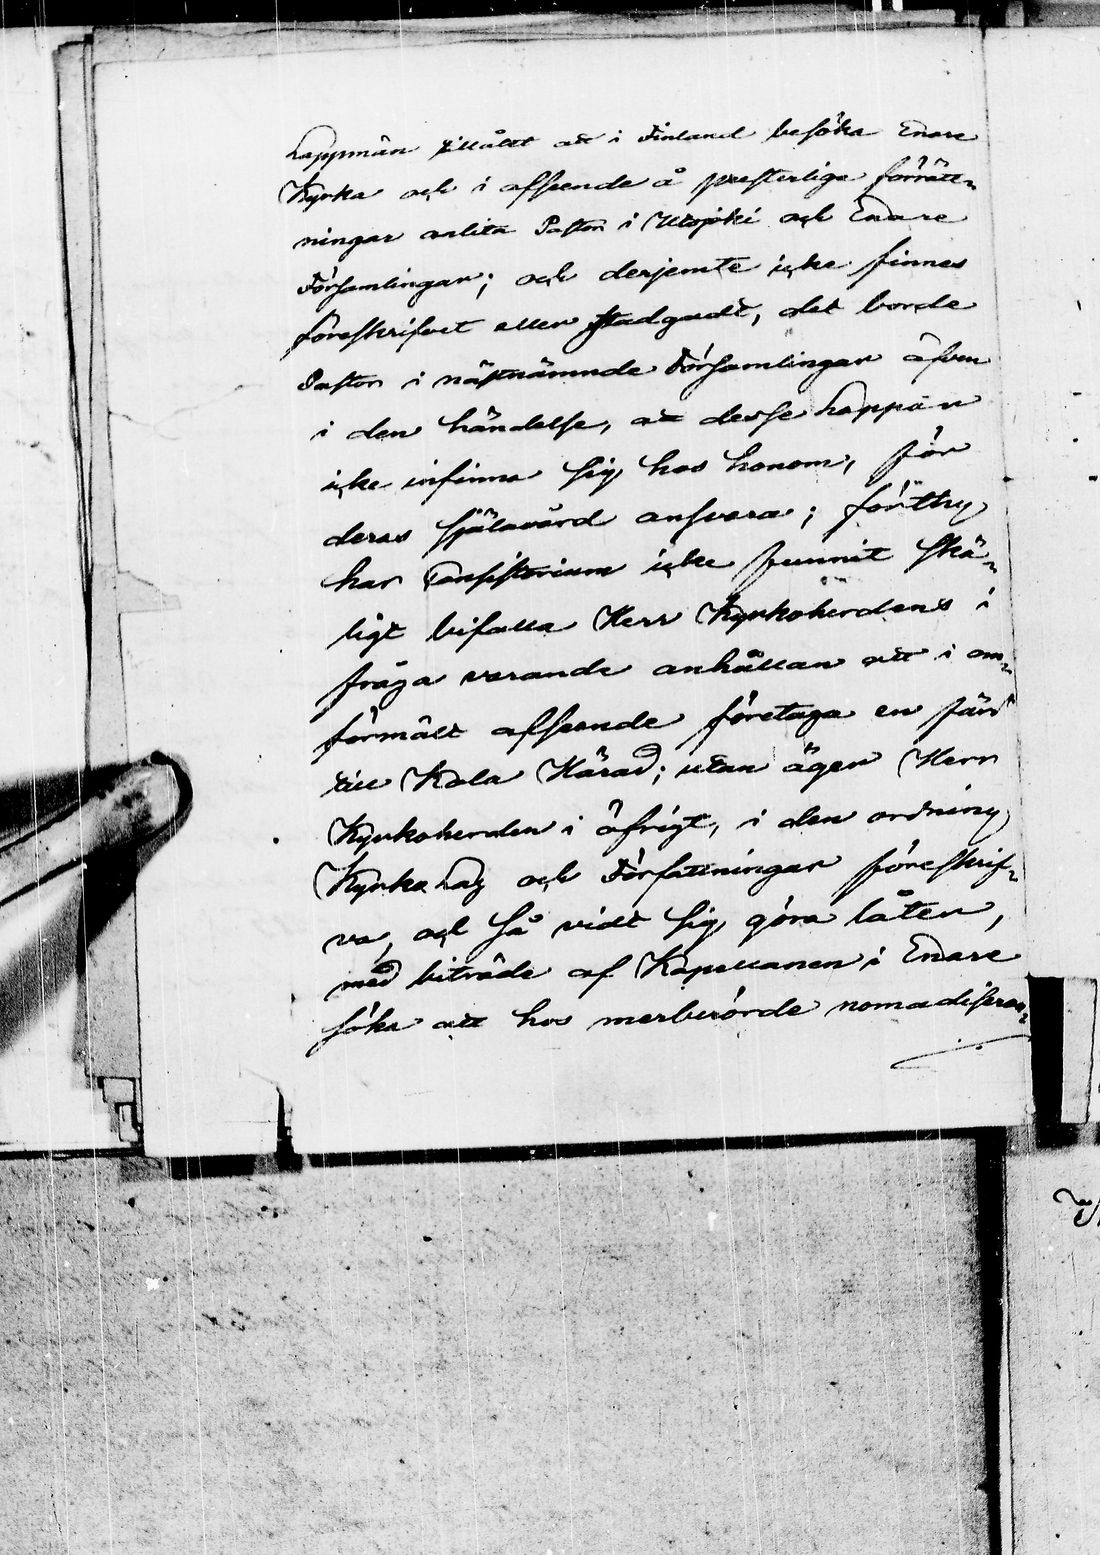 Lappmän tillåtet att i Finland besöka Enare
Kyrka och i afseende å presterliga förrätt-
ningar anlita Pastor i Utsjoki och Enare
Församlingar; och derjemte icke finnes
föreskrifvet eller stadgadt, det borde
Pastor i nästnämnde Församlingar äfven
i den händelse, att desse Lappar
icke infinna sig hos honom, för
deras själavård ansvara; förthy
har Consistorium icke funnit skä-
ligt bifalla Herr Kyrkoherdens i
fråga varande anhållan att i om-
förmält afseende företaga en färd
till Kola Härad; utan äger Herr
Kyrkoherden i öfrigt, i den ordning
Kyrko Lag och Författningar föreskrif-
va, och så vidt sig göra låter,
med biträde af Kapellanen i Enare
söka att hos merberörde nomadiseran-